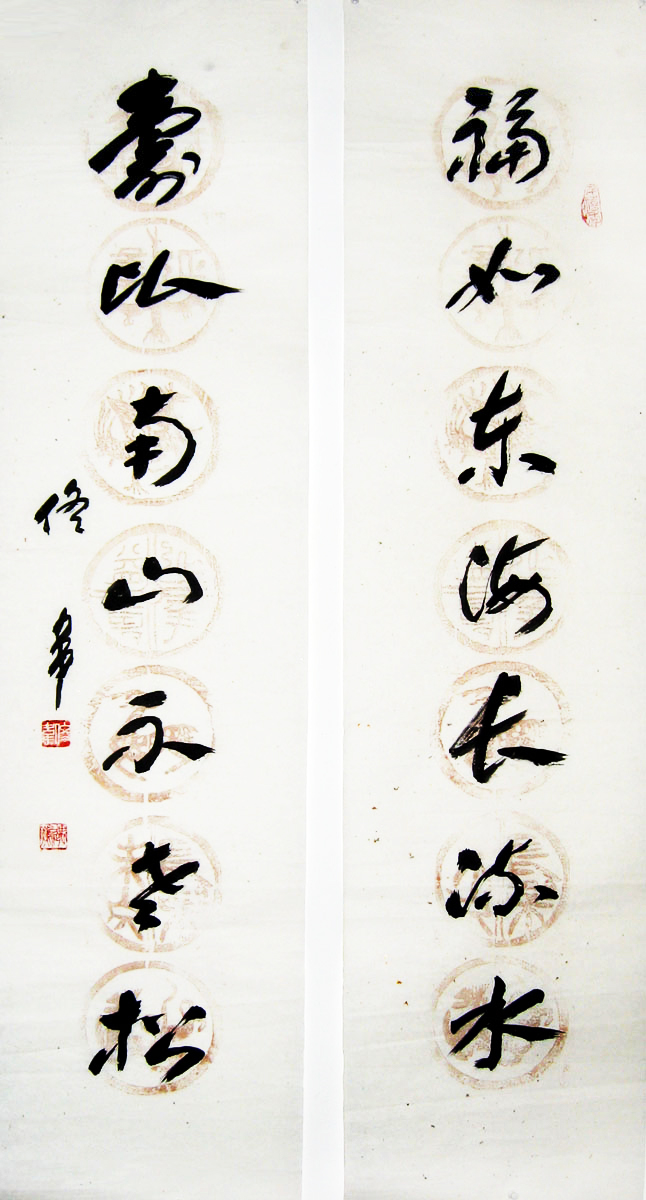 福如东海长流水
壽比南山不老松
佟韋